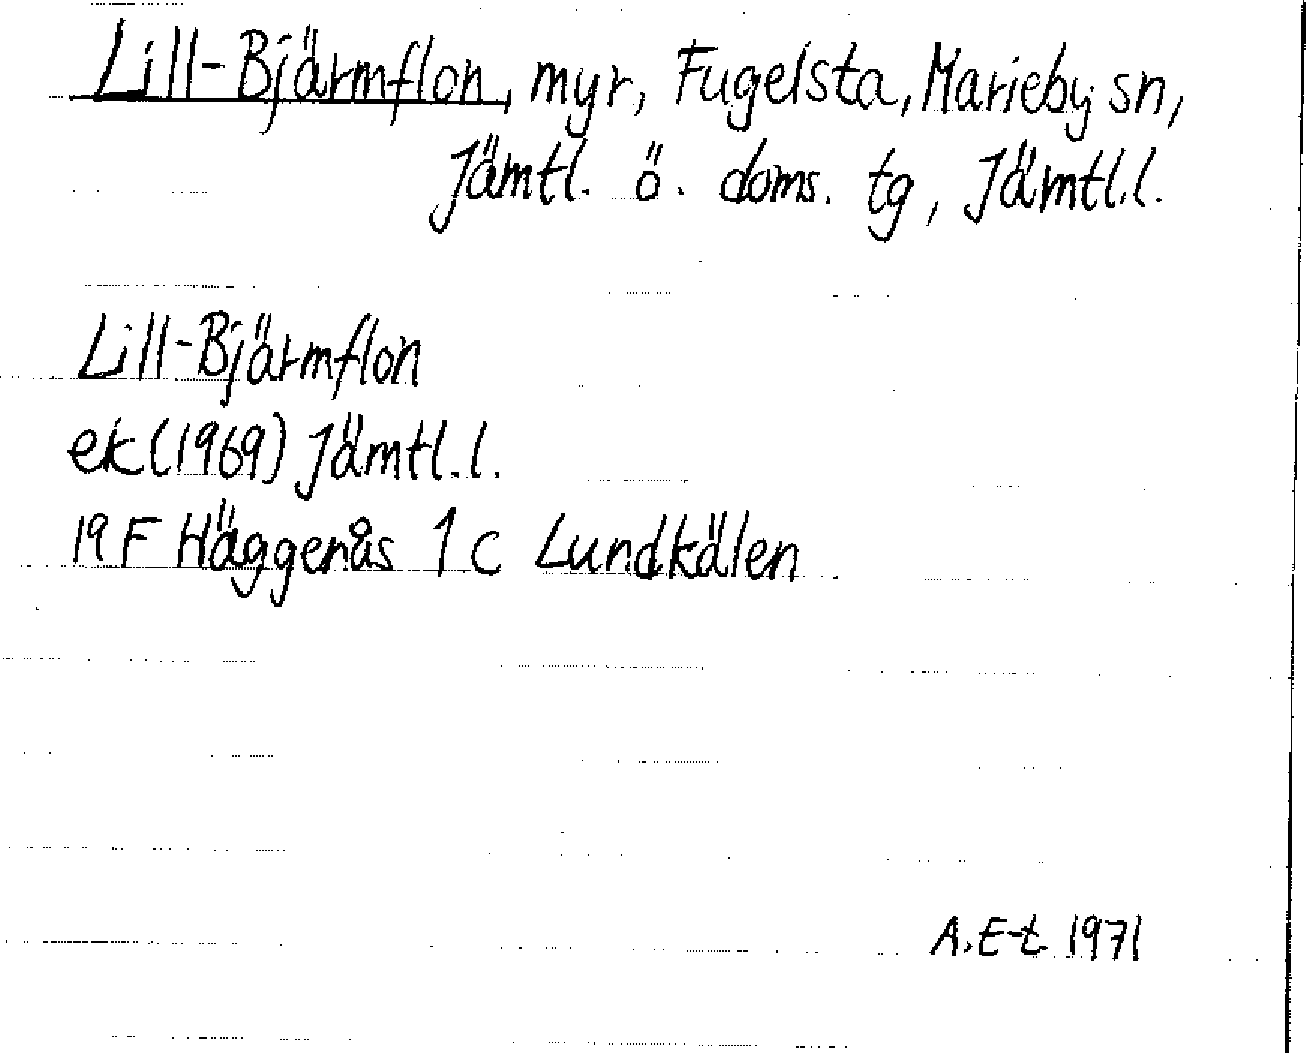 Lill-Bjärmflon, myr, Fugelsta, Marieby sn,
Jämtl. ö. doms. tg, Jämtl.l.
Lill-Bjärmflon
ek (1969) Jämtl.l.
19 F Häggenås 1 c Lundkälen
A.E-t. 1971